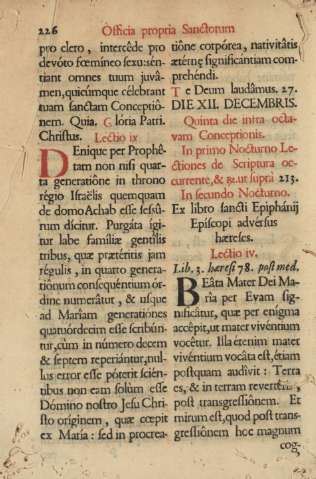 226 Officia propria Sanctorum
pro clero, intercéde pro
devóto fœmineo sexu: sén-
tiant omnes tuum juvá-
men, quicúmque célebrant
tuam sanctam Conceptió-
nem. Quia. Glória Patri.
Christus. Lectio ix
DEnique per Prophé-
tam non nisi quar-
ta generatióne in throno
régio Israélis quemquam
de domo Achab esse sessú-
rum dícitur. Purgáta igi-
tur labe famíliæ gentílis
tribus, quæ prætéritis jam
régulis, in quarto genera-
tiónum consequéntium ór-
dine numerátur, & usque
ad Maríam generatiónes
quatuórdecim esse scribún-
tur, cùm in número decem
& septem reperiántur, nul-
lus error esse póterit scién-
tibus non eam solùm esse
Dómino nostro Jesu Chri-
sto originem, quæ cœpit
ex Maria: sed in procrea-
tióne corpórea, nativitátis
ætérnæ significántiam com-
prehéndi.
Te Deum laudámus. 27.
DIE XII. DECEMBRIS.
Quinta die infra octa-
vam Conceptionis.
In primo Nocturno Le-
ctiones de Scriptura oc-
currente, & ꝶ. ut suprà 213.
In secundo Nocturno.
Ex libro sancti Epiphánij
Epíscopi advérsus
hæreses.
Lectio iv.
Lib. 3. hæresi 78. post med.
BEáta Mater Dei Ma-
ría per Evam sig-
nificátur, quæ per enigma
accépit, ut mater vivéntium
vocétur. Illa etenim mater
vivéntium vocáta est, étiam
postquam audívit: Terra
es, & in terram revertéris,
post transgressiónem. Et
mirum est, quod post trans-
gressiónem hoc magnum
cog-